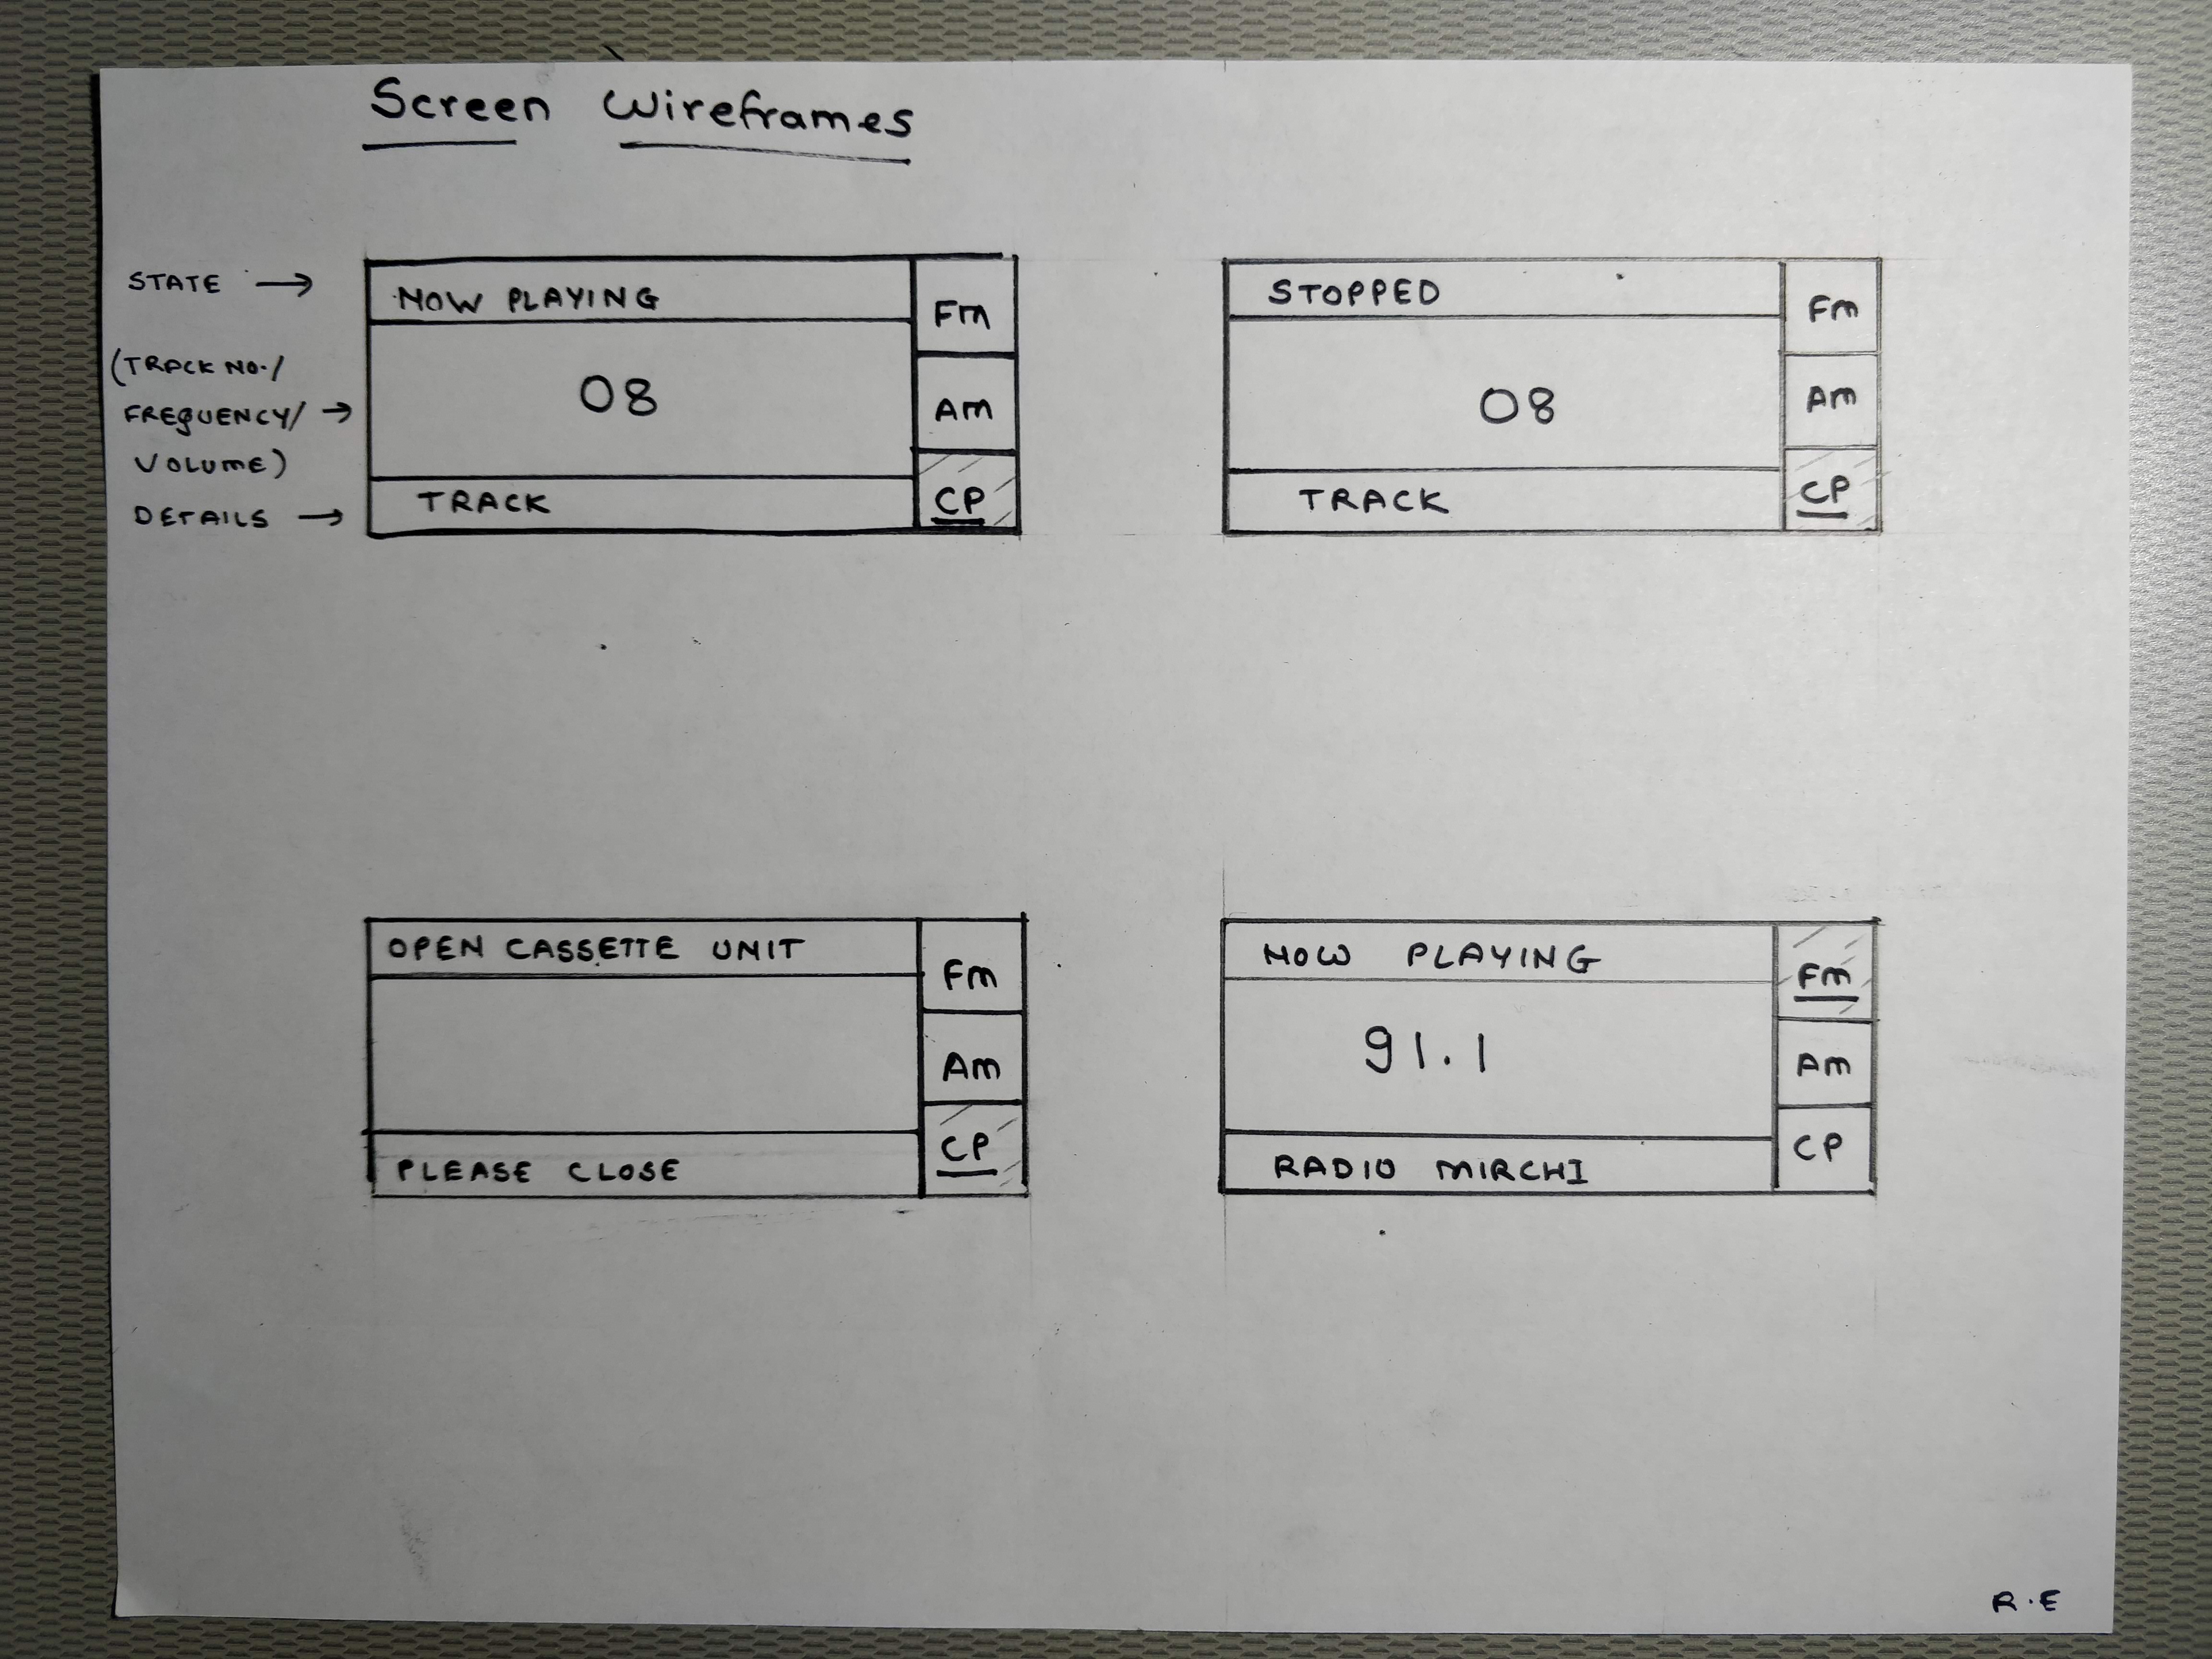 Screen Wireframes
STATE →
(TRACK NO./
FREQUENCY/ →
VOLUME)
DETAILS →
NOW PLAYING
08
TRACK
Fm
Am
CP
STOPPED
08
TRACK
Fm
Am
CP
OPEN CASSETTE UNIT
PLEASE CLOSE
Fm
Am
CP
NOW PLAYING
91.1
RADIO MIRCHI
Fm
Am
CP
R.E